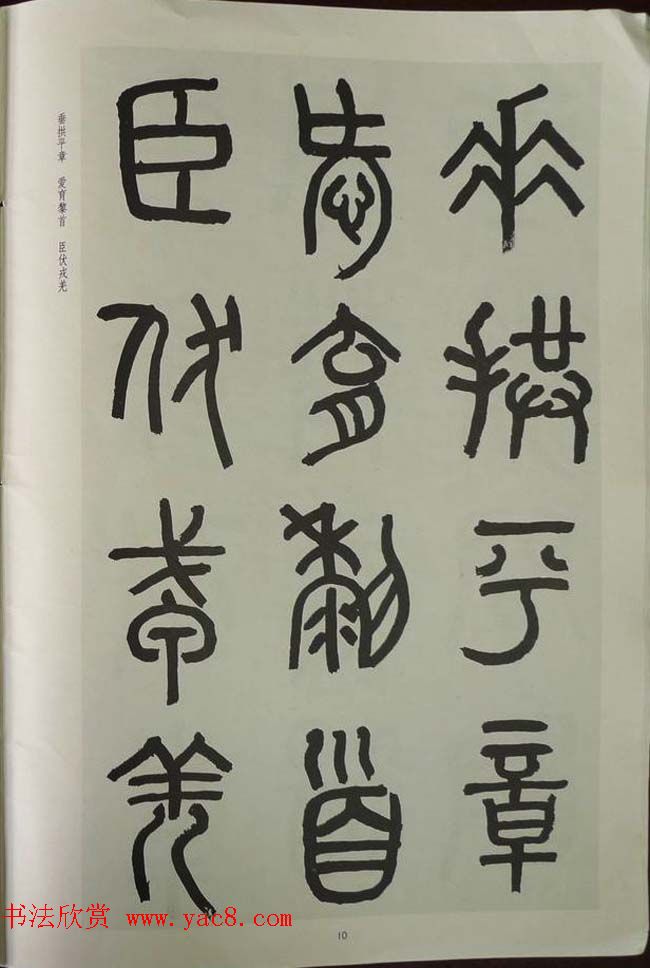 垂拱平章
爱育黎首
臣伏戎羌
垂拱平章 爱育黎首 臣伏戎羌
书法欣赏 www.yac8.com
10